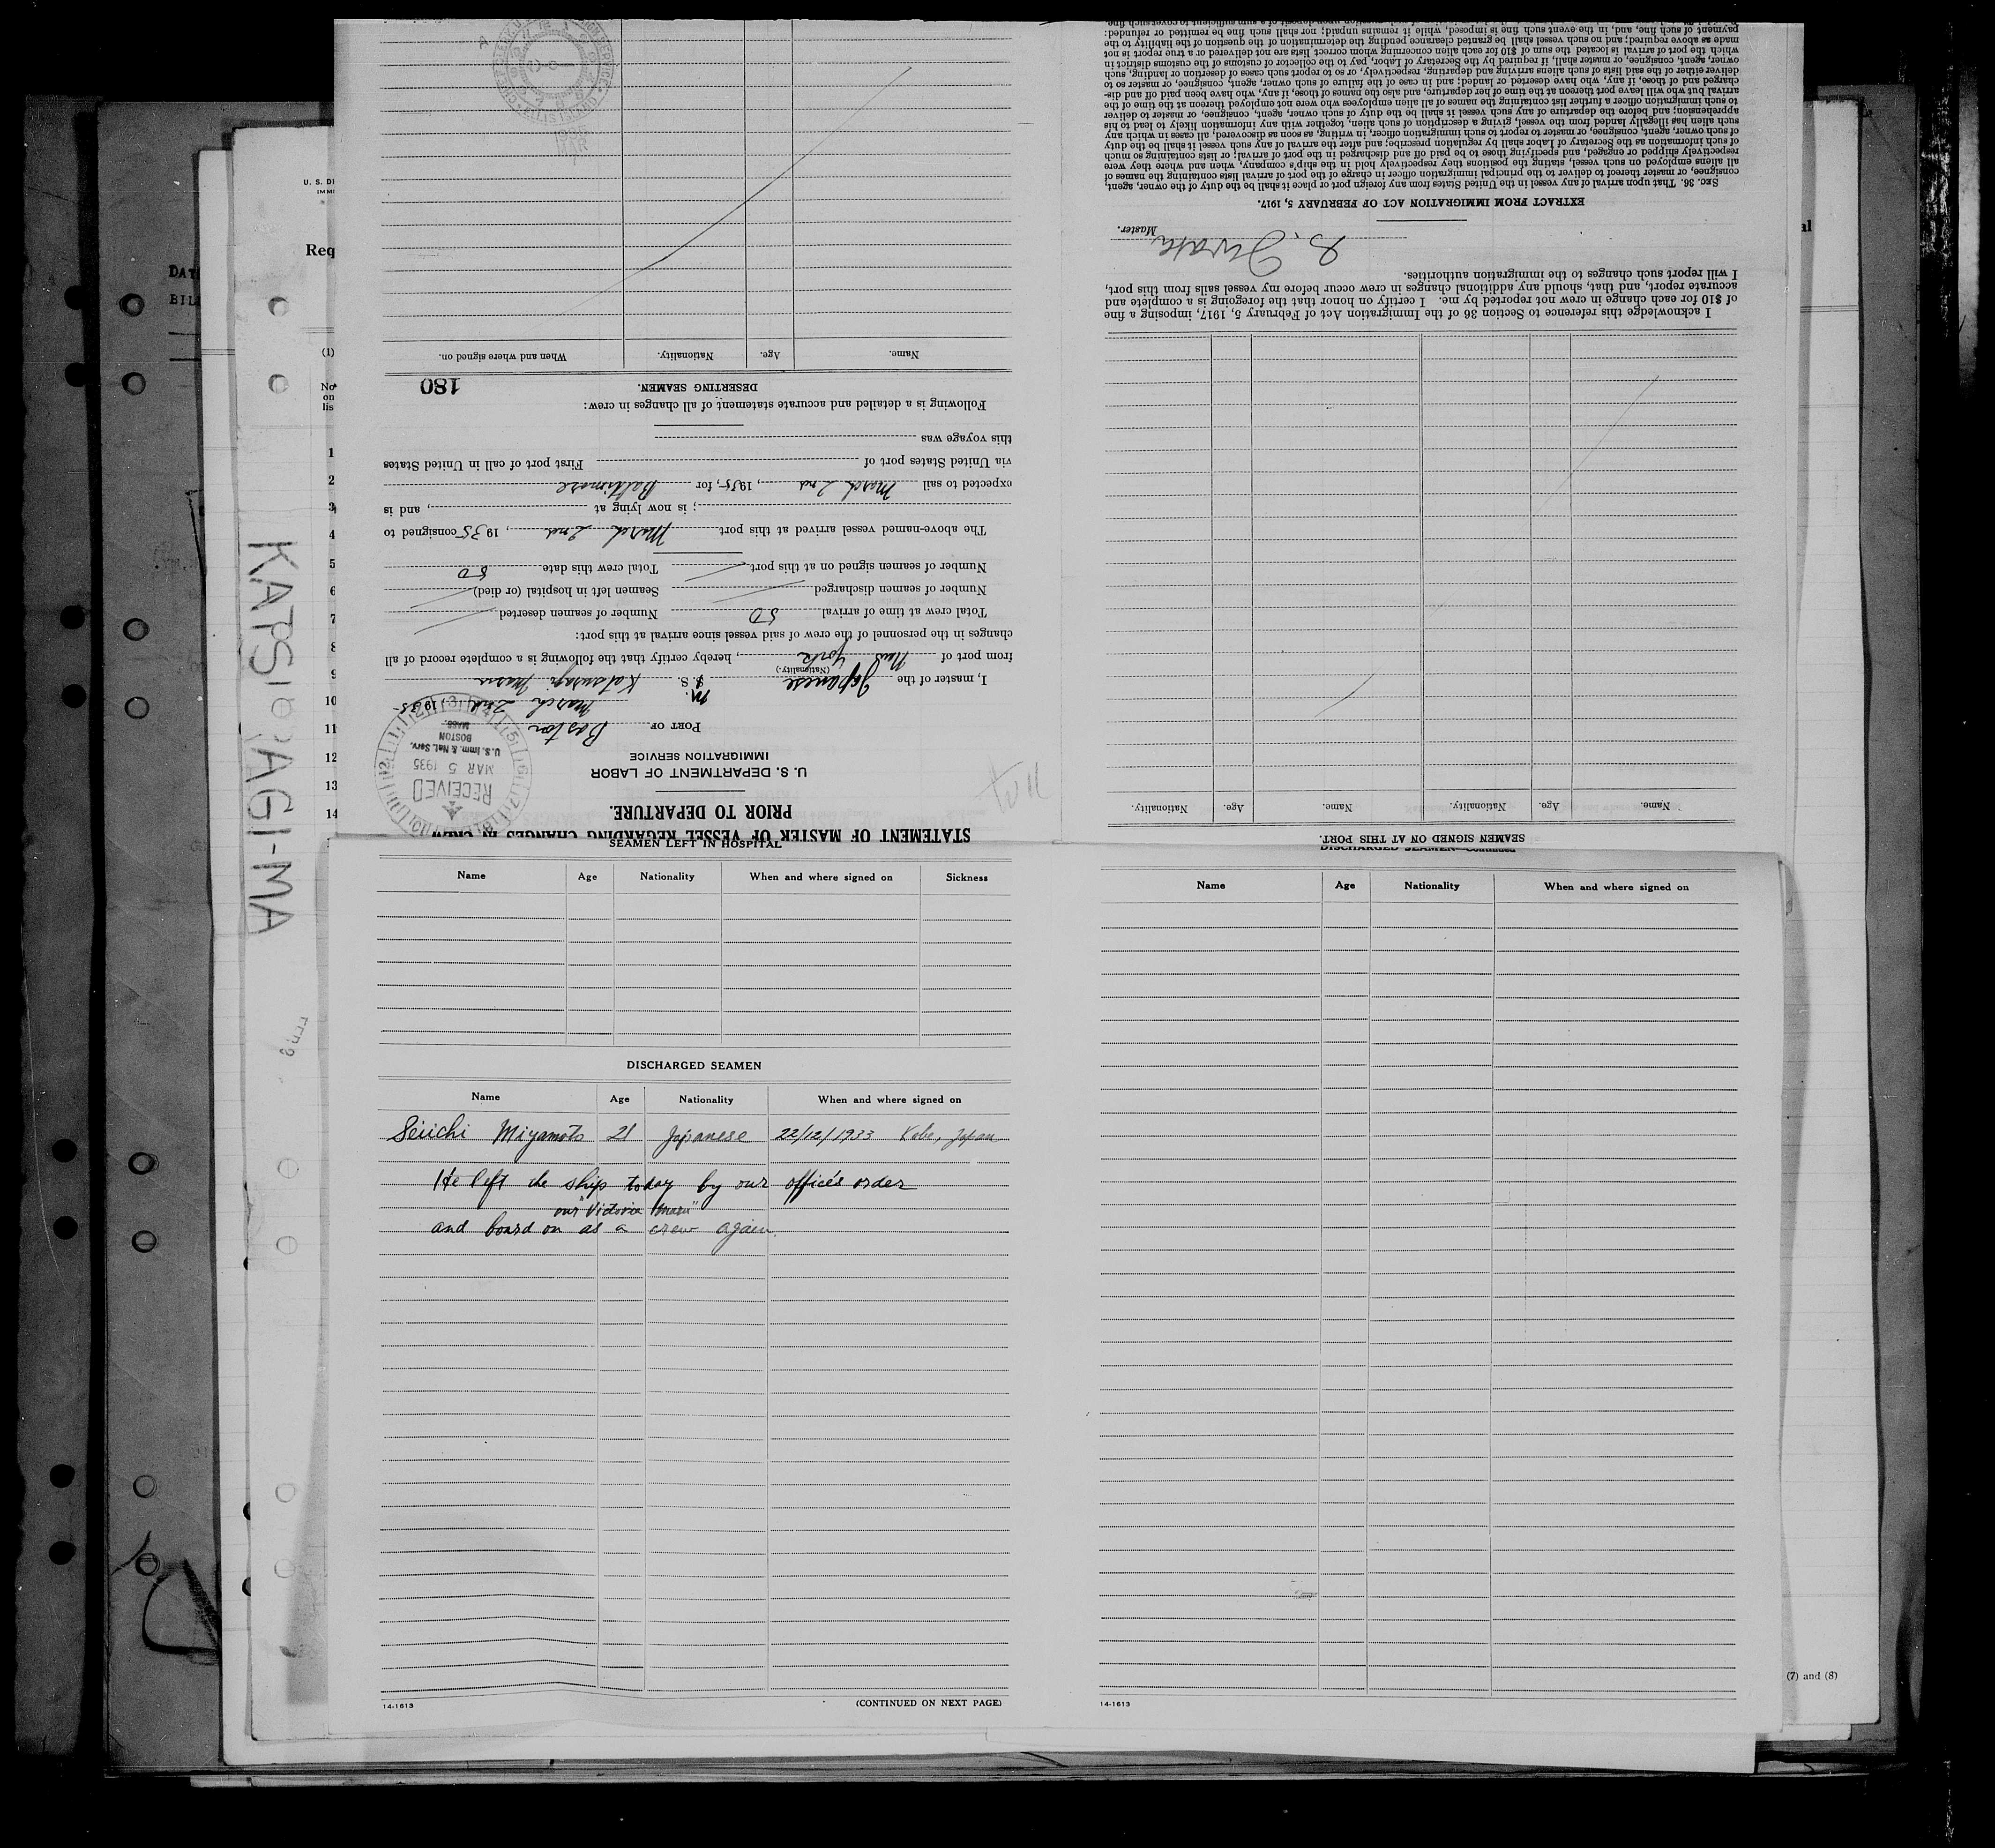 STATEMENT OF MASTER OF VESSEL REGARDING CHANGES IN CREW
PRIOR TO DEPARTURE.
U. S. DEPARTMENT OF LABOR
IMMIGRATION SERVICE
RECEIVED
MAR 5 1935
U. S. Imm. & Nat. Serv.
BOSTON
MASS.
PORT OF Boston
March 2nd, 1935
I, master of the Japanese M. S. Katsuragi Maru
(Nationality.)
from port of New York, hereby certify that the following is a complete record of all
changes in the personnel of the crew of said vessel since arrival at this port:
Total crew at time of arrival 50 Number of seamen deserted
Number of seamen discharged Seamen left in hospital (or died)
Number of seamen signed on at this port Total crew this date 50
The above-named vessel arrived at this port March 2nd, 1935 consigned to
; is now lying at , and is
expected to sail March 2nd, 1935, for Baltimore
via United States port of First port of call in United States
this voyage was
Following is a detailed and accurate statement of all changes in crew:
DESERTING SEAMEN.
180
Name. Age. Nationality. When and where signed on.
SEAMEN SIGNED ON AT THIS PORT.
Name. Age. Nationality. Name. Age. Nationality.
I acknowledge this reference to Section 36 of the Immigration Act of February 5, 1917, imposing a fine
of $10 for each change in crew not reported by me. I certify on honor that the foregoing is a complete and
accurate report, and that, should any additional changes in crew occur before my vessel sails from this port,
I will report such changes to the immigration authorities.
Master.
EXTRACT FROM IMMIGRATION ACT OF FEBRUARY 5, 1917.
SEC. 36. That upon arrival of any vessel in the United States from any foreign port or place it shall be the duty of the owner, agent,
consignee, or master thereof to deliver to the principal immigration officer in charge of the port of arrival lists containing the names of
all aliens employed on such vessel, stating the positions they respectively hold in the ship's company, when and where they were
respectively shipped or engaged, and specifying those to be paid off and discharged in the port of arrival; or lists containing so much
of such information as the Secretary of Labor shall by regulation prescribe; and after the arrival of any such vessel it shall be the duty
of such owner, agent, consignee, or master to report to such immigration officer, in writing, as soon as discovered, all cases in which any
such alien has illegally landed from the vessel, giving a description of such alien, together with any information likely to lead to his
apprehension; and before the departure of any such vessel it shall be the duty of such owner, agent, consignee, or master to deliver
to such immigration officer a further list containing the names of all alien employees who were not employed thereon at the time of the
arrival but who will leave port thereon at the time of her departure, and also the names of those, if any, who have been paid off and dis-
charged and of those, if any, who have deserted or landed; and in case of the failure of such owner, agent, consignee, or master so to
deliver either of the said lists of such aliens arriving and departing, respectively, or so to report such cases of desertion or landing, such
owner, agent, consignee, or master shall, if required by the Secretary of Labor, pay to the collector of customs of the customs district in
which the port of arrival is located the sum of $10 for each alien concerning whom correct lists are not delivered or a true report is not
made as above required; and no such vessel shall be granted clearance pending the determination of the question of the liability to the
payment of such fine, and, in the event such fine is imposed, while it remains unpaid; nor shall such fine be remitted or refunded:
SEAMEN LEFT IN HOSPITAL
Name Age Nationality When and where signed on Sickness
DISCHARGED SEAMEN
Name Age Nationality When and where signed on
Seiichi Miyamoto 21 Japanese 22/12/1933 Kobe, Japan
He left the ship today by our office's order
our "Victoria Maru"
and board on as a crew again.
14-1613
(CONTINUED ON NEXT PAGE)
DISCHARGED SEAMEN—Continued
Name Age Nationality When and where signed on
14-1613
KATSURAGI-MA
U. S. DE
IMMI
Req
(1)
No
on
lis
1
2
3
4
5
6
7
8
9
10
11
12
13
14
DAT
BIL
al
(7) and (8)